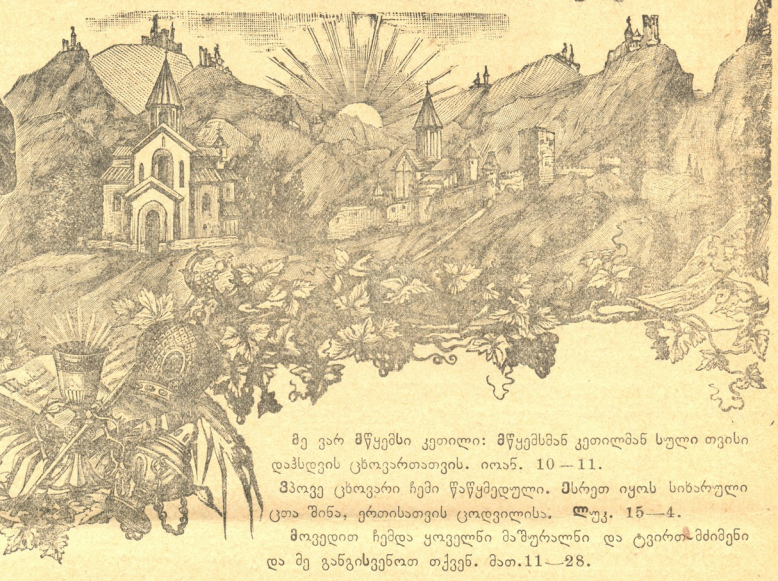 მე ვარ მწყემსი კეთილი: მწყემსმან კეთილმან სული თვისი
დაჰსდვის ცხოვართათვის. იოან. 10—11.
ვჰპოვე ცხოვარი ჩემი წაწყმედული. ესრეთ იყოს სიხარული
ცთა შინა, ერთისათვის ცოდვილისა. ლუკ. 15—4.
მოვედით ჩემდა ყოველნი მაშურალნი და ტვირთ-მძიმენი
და მე განგისვენოთ თქვენ. მათ.11—28.